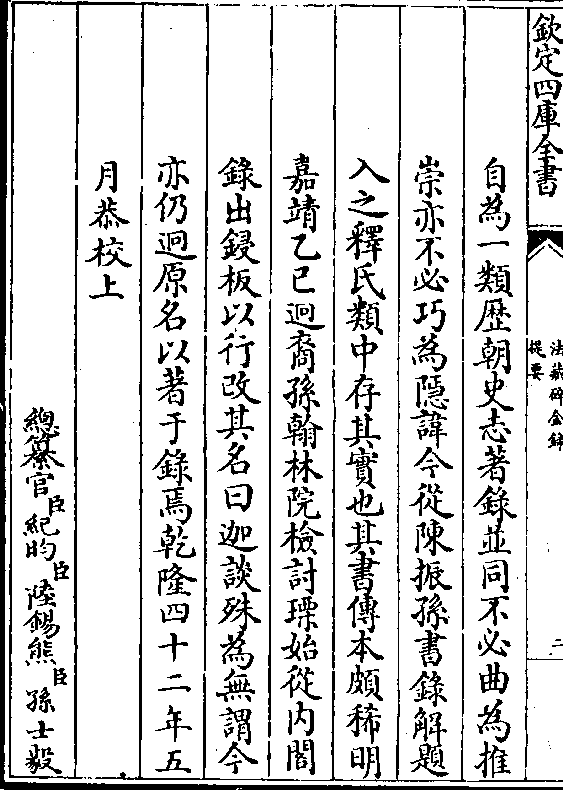 欽定四庫全書
法藏碎金錄
提要
二
自為一類歴朝史志著錄並同不必曲為推
崇亦不必巧為隱諱今從陳振孫書錄解題
入之釋氏類中存其實也其書傳本頗稀明
嘉靖乙巳迥裔孫翰林院檢討瑮始從内閣
錄出鋟板以行改其名曰迦談殊為無謂今
亦仍迥原名以著于錄焉乾隆四十二年五
月恭校上
總纂官臣紀昀臣陸錫熊臣孫士毅